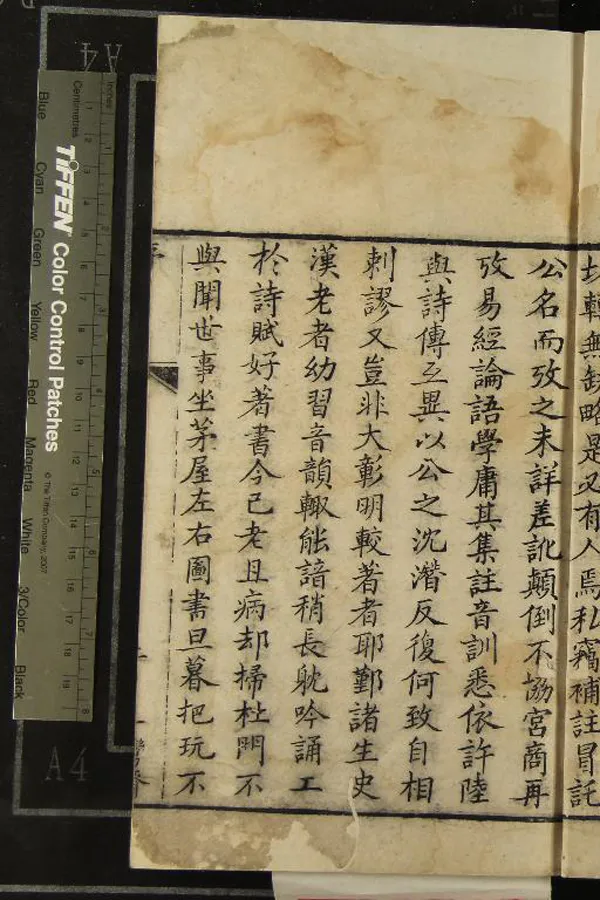 切轉無缺略是又有人焉私竊補註冒託
公名而攷之未詳差訛顛倒不協宮商再
攷易經論語學庸其集註音訓悉依許陸
與詩傳互異以公之沈潛反復何致自相
刺謬又豈非大彰明較著者耶鄞諸生史
漢老者幼習音韻輙能諳稍長躭吟誦工
於詩賦好著書今已老且病却掃杜門不
與聞世事坐茅屋左右圖書旦暮把玩不
Inches
Centimetres
TIFFEN Color Control Patches
© The Tiffen Company, 2007
Blue
Cyan
Green
Yellow
Red
Magenta
White
3/Color
Black
A4
A4